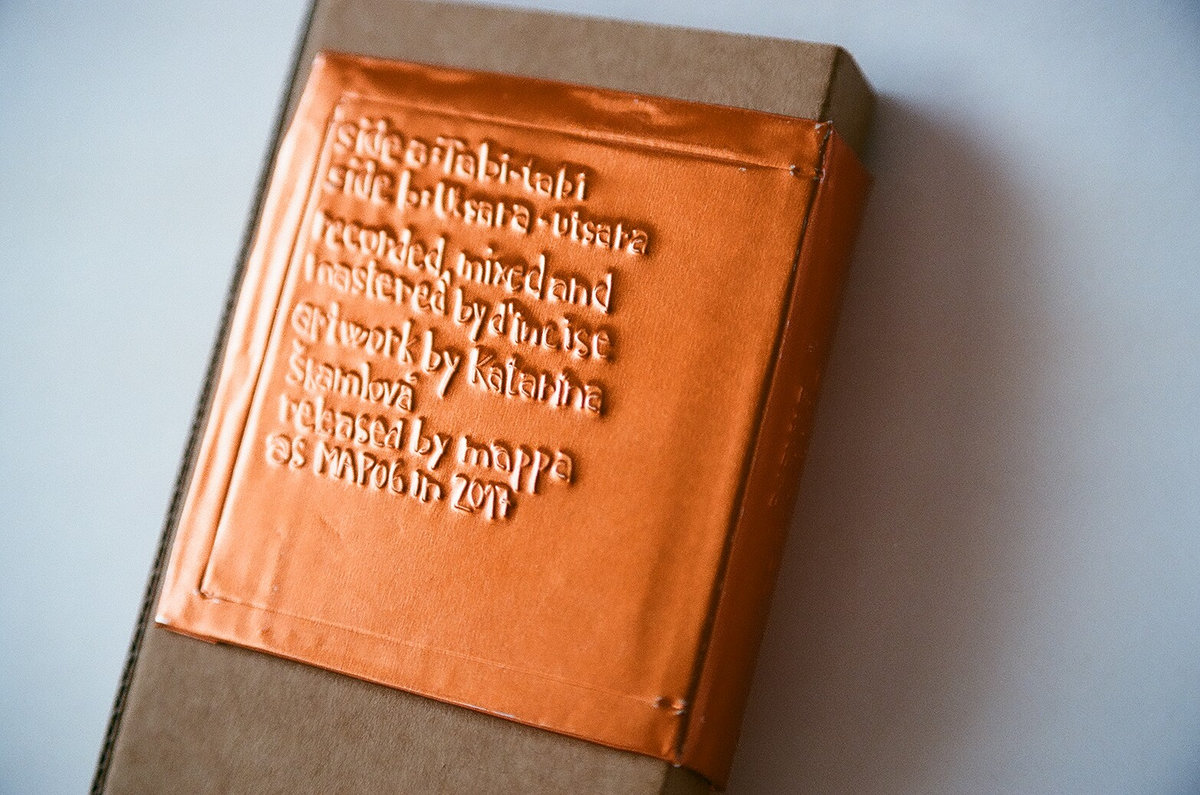 side a: Tabi-tabi
side b: Utsara-utsara
recorded, mixed and
mastered by d'incise
artwork by Katarína
Škamlová
released by mappa
as MAP06 in 2017